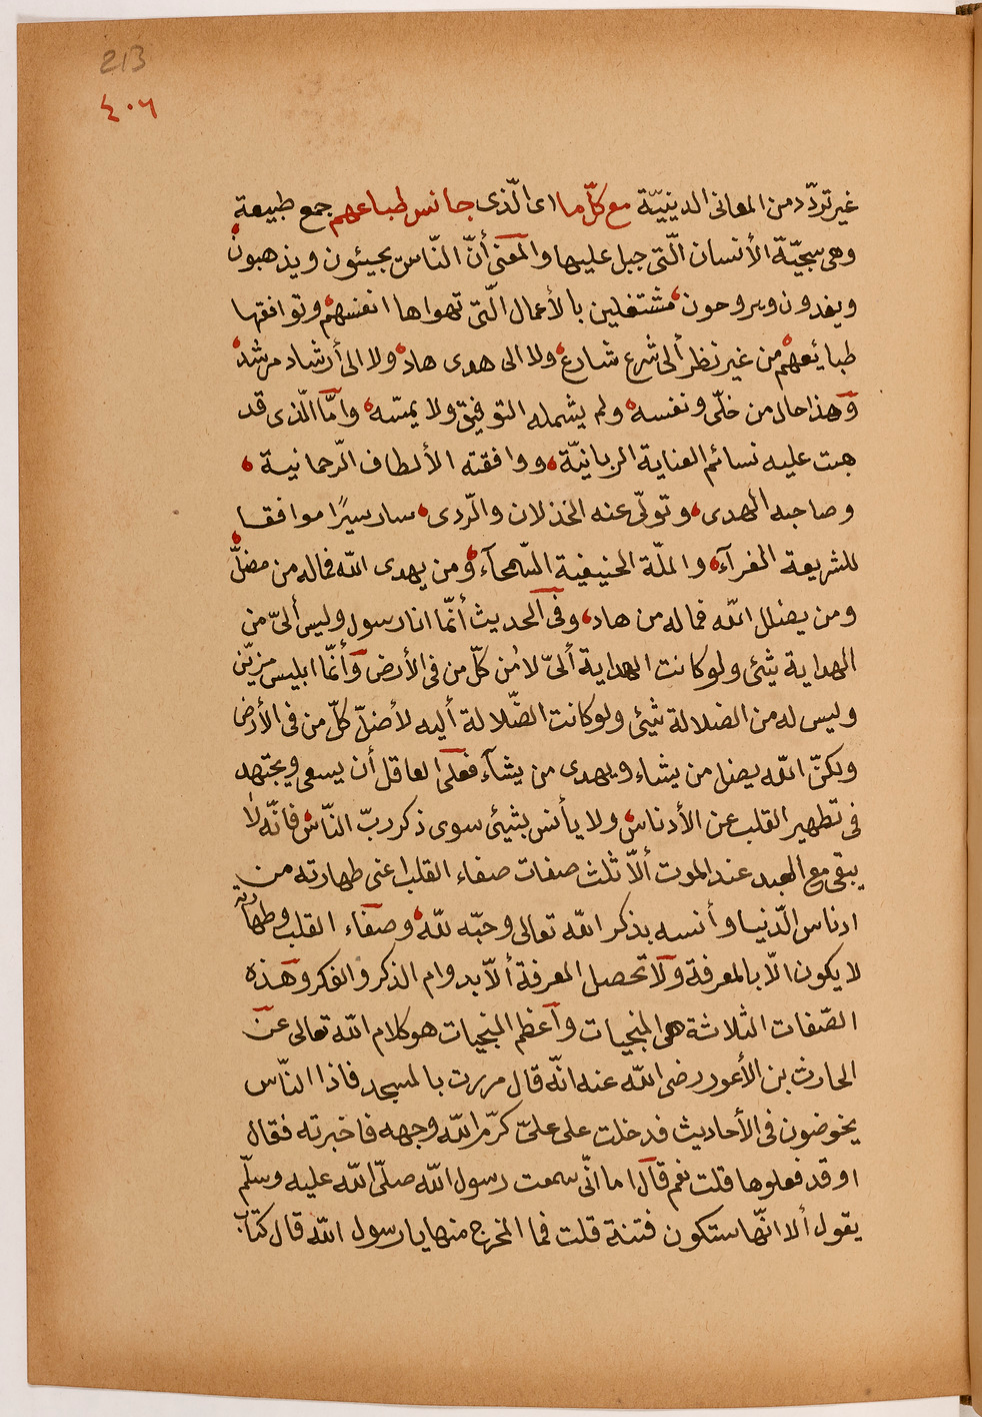 213
٤٠٦
غير تردّد من المعانى الدينيّة مع كلّ ما اى الّذى جانس طباعهم جمع طبيعة
وهى سجيّة الأنسان الّتى جبل عليها والمعنى أنّ النّاس يجيئون ويذهبون
ويغدون ويروحون مشتغلين بالأعمال الّتى تهواها انفسهم وتوافقها
طبايعهم من غير نظر ألى شرع شارع ولا الى هدى هاد ولا الى أرشاد مرشد
وهذا حال من خلّى ونفسه ولم يشمله التوفيق ولا يمسّه وامّا الّذى قد
هبت عليه نسائم العناية الربانيّة ووافقته الألطاف الرّحمانية
وصاحبه الهدى وتولّى عنه الخذلان والرّدى سار سيرًا موافقا
للشريعة الغرآء والملّة الحنيفية السّمحآء ومن يهدى الله فماله من مضلّ
ومن يضلل الله فماله من هاد وفى الحديث أنّما انا رسول وليس ألىّ من
الهداية شئ ولو كانت الهداية ألىّ لأمن كلّ من فى الأرض وأنّما ابليس مزيّن
وليس له من الضلالة شئ ولو كانت الضّلالة أليه لأضلّ كلّ من فى الأرض
ولكنّ الله يضل من يشاء ويهدى من يشآء فعلى العاقل أن يسعى ويجتهد
فى تطهير القلب عن الأدناس ولا يأنس بشيئى سوى ذكر ربّ النّاس فانّه لا
يبقى مع العبد عند الموت ألاّ ثلث صفات صفاء القلب اعنى طهارته من
ادناس الدّنيا وأنسه بذكر الله تعالى وحبّه للّه وصفاء القلب وطهارته
لا يكون الّا بالمعرفة ولا تحصل المعرفة ألاّ بدوام الذكر والفكر وهذه
الصّفات الثلاثة هى المنجيات وأعظم المنجيات هو كلام الله تعالى عن
الحارث بن الأعور رضى الله عنه انّه قال مررت بالمسجد فاذا النّاس
يخوضون فى الأحاديث فدخلت على علىّ كرّم الله وجهه فاخبرته فقال
او قد فعلوها قلت نعم قال اما انّى سمعت رسول الله صلّى الله عليه وسلّم
يقول ألا انّها ستكون فتنة قلت فما المخرج منها يا رسول الله قال كتاب